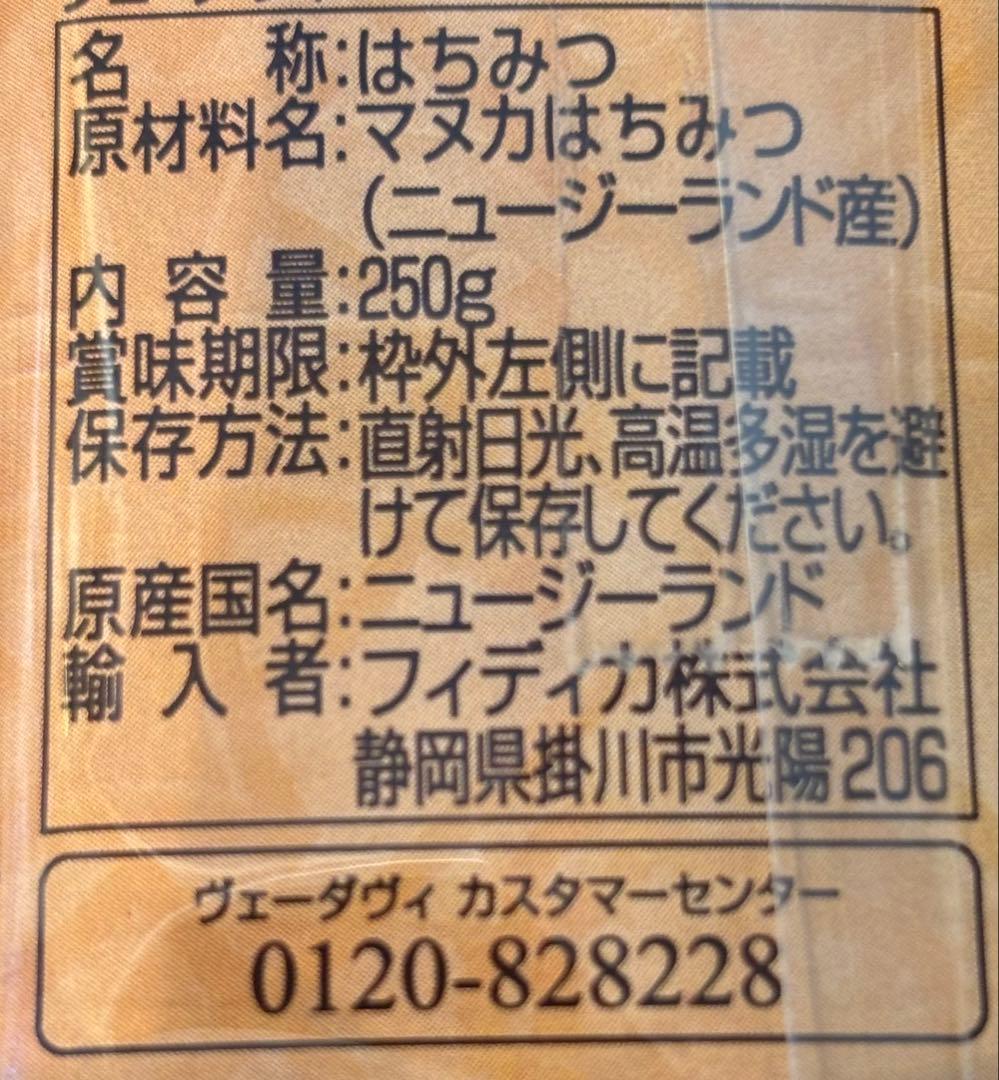 名称:はちみつ
原材料名:マヌカはちみつ
(ニュージーランド産)
内容量:250g
賞味期限:枠外左側に記載
保存方法:直射日光、高温多湿を避
けて保存してください。
原産国名:ニュージーランド
輸入者:フィディカ株式会社
静岡県掛川市光陽206
ヴェーダヴィ カスタマーセンター
0120-828228